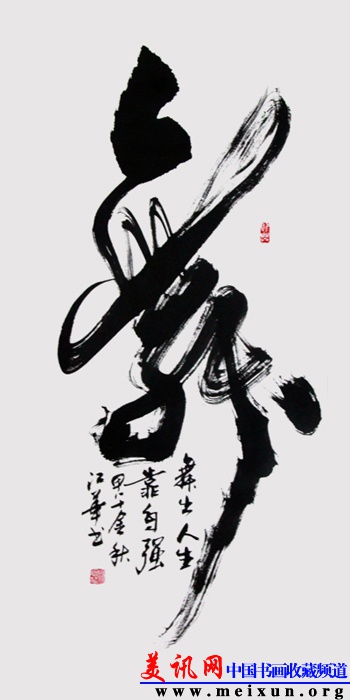 舞
舞出人生
靠自强
甲午金秋
江华书
美讯网 中国书画收藏频道
www.meixun.org